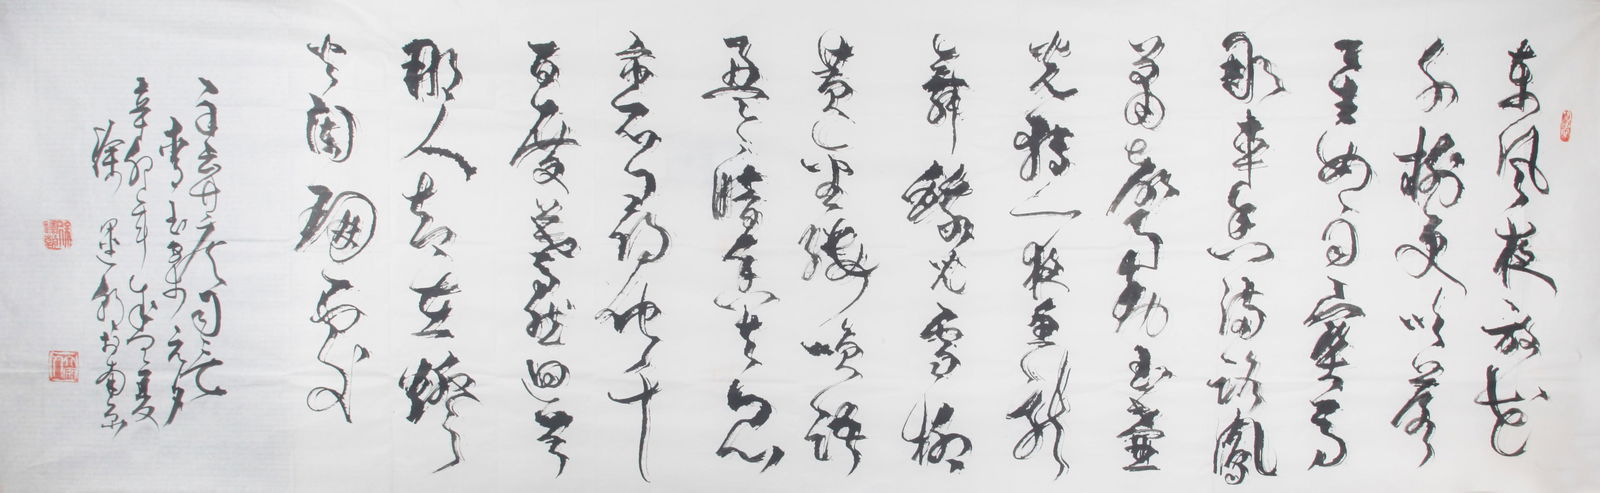 東風夜放花
千樹更吹落
星如雨寶馬
雕車香滿路鳳
簫聲動玉壺
光轉一夜魚龍
舞蛾兒雪柳
黃金縷笑語
盈盈暗香去
衆裏尋他千
百度驀然迴首
那人却在燈
火闌珊處
辛棄疾詞
青玉案元夕
辛卯年夏
徐於南京